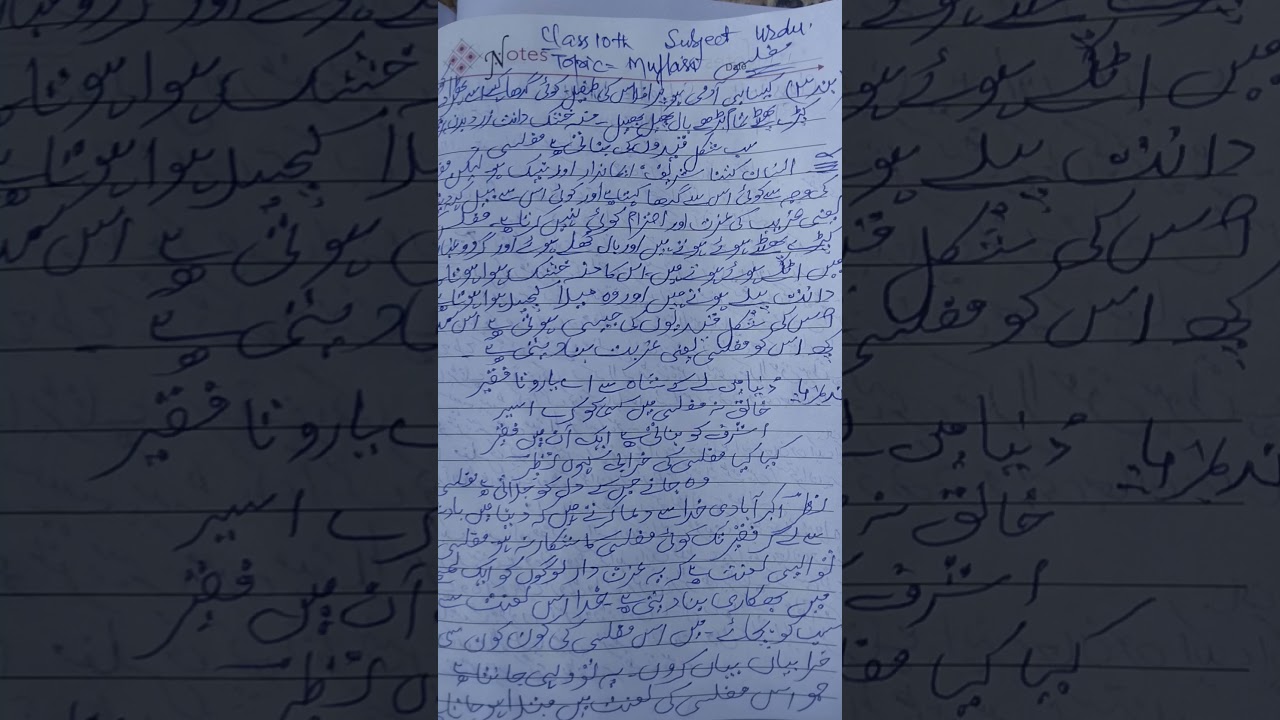 Class 10th Subject Urdu.
Notes Topic - Muflasi مفلسی Date
کیسا ہی آدمی ہو پر افلاس کی طفیل کوئی گدھا کہے اسے
کپڑے پھٹے تمام بڑھے بال پھیل پھیل منہ خشک دانت زرد بدن
سب شکل قیدیوں کی بناتی ہے مفلسی -
انسان کتنا شریف ایماندار اور نیک ہو لیکن
کی وجہ سے کوئی اس سے گدھا کہتا ہے اور کوئی اس سے بیل
یعنی غریب کی عزت اور احترام کوئی نہیں کرتا ہے
کپڑے پھٹے ہوئے ہوتے ہیں اور بال کھلے ہوئے اور گرد و غبار
میں اٹک ہوئے ہوتے ہیں - اس کا منہ خشک ہوا ہوتا
دانت پیلے ہوتے ہیں اور وہ میلا کچیل ہوا ہوتا ہے
جس کی شکل قیدیوں کی جیسی ہوتی ہے اس
کچھ اس کو مفلسی یعنی غربت بنا دیتی ہے -
دنیا میں لے کے شاہ سے اے یارو تا فقیر
خالق نہ مفلسی میں کسی کو کرے اسیر
اشرف کو بناتی ہے ایک آن میں فقیر
کیا کیا مفلسی کی خرابی کہوں نظیر
وہ جانے جس کے دل کو جلاتی ہے مفلسی
نظیر اکبر آبادی خدا سے دعا کرتے ہیں کہ دنیا میں
سے لے کر فقیر تک کوئی مفلسی کا شکار نہ ہو مفلسی
تو ایسی لعنت ہے کہ یہ عزت دار لوگوں کو ایک
میں بھکاری بنا دیتی ہے - خدا اس لعنت سے
سب کو بچائے - میں اس مفلسی کی کون کون سی
خرابیاں بیاں کروں - یہ تو وہی جانتا ہے
جو اس مفلسی کی لعنت میں مبتلا ہو جاتا